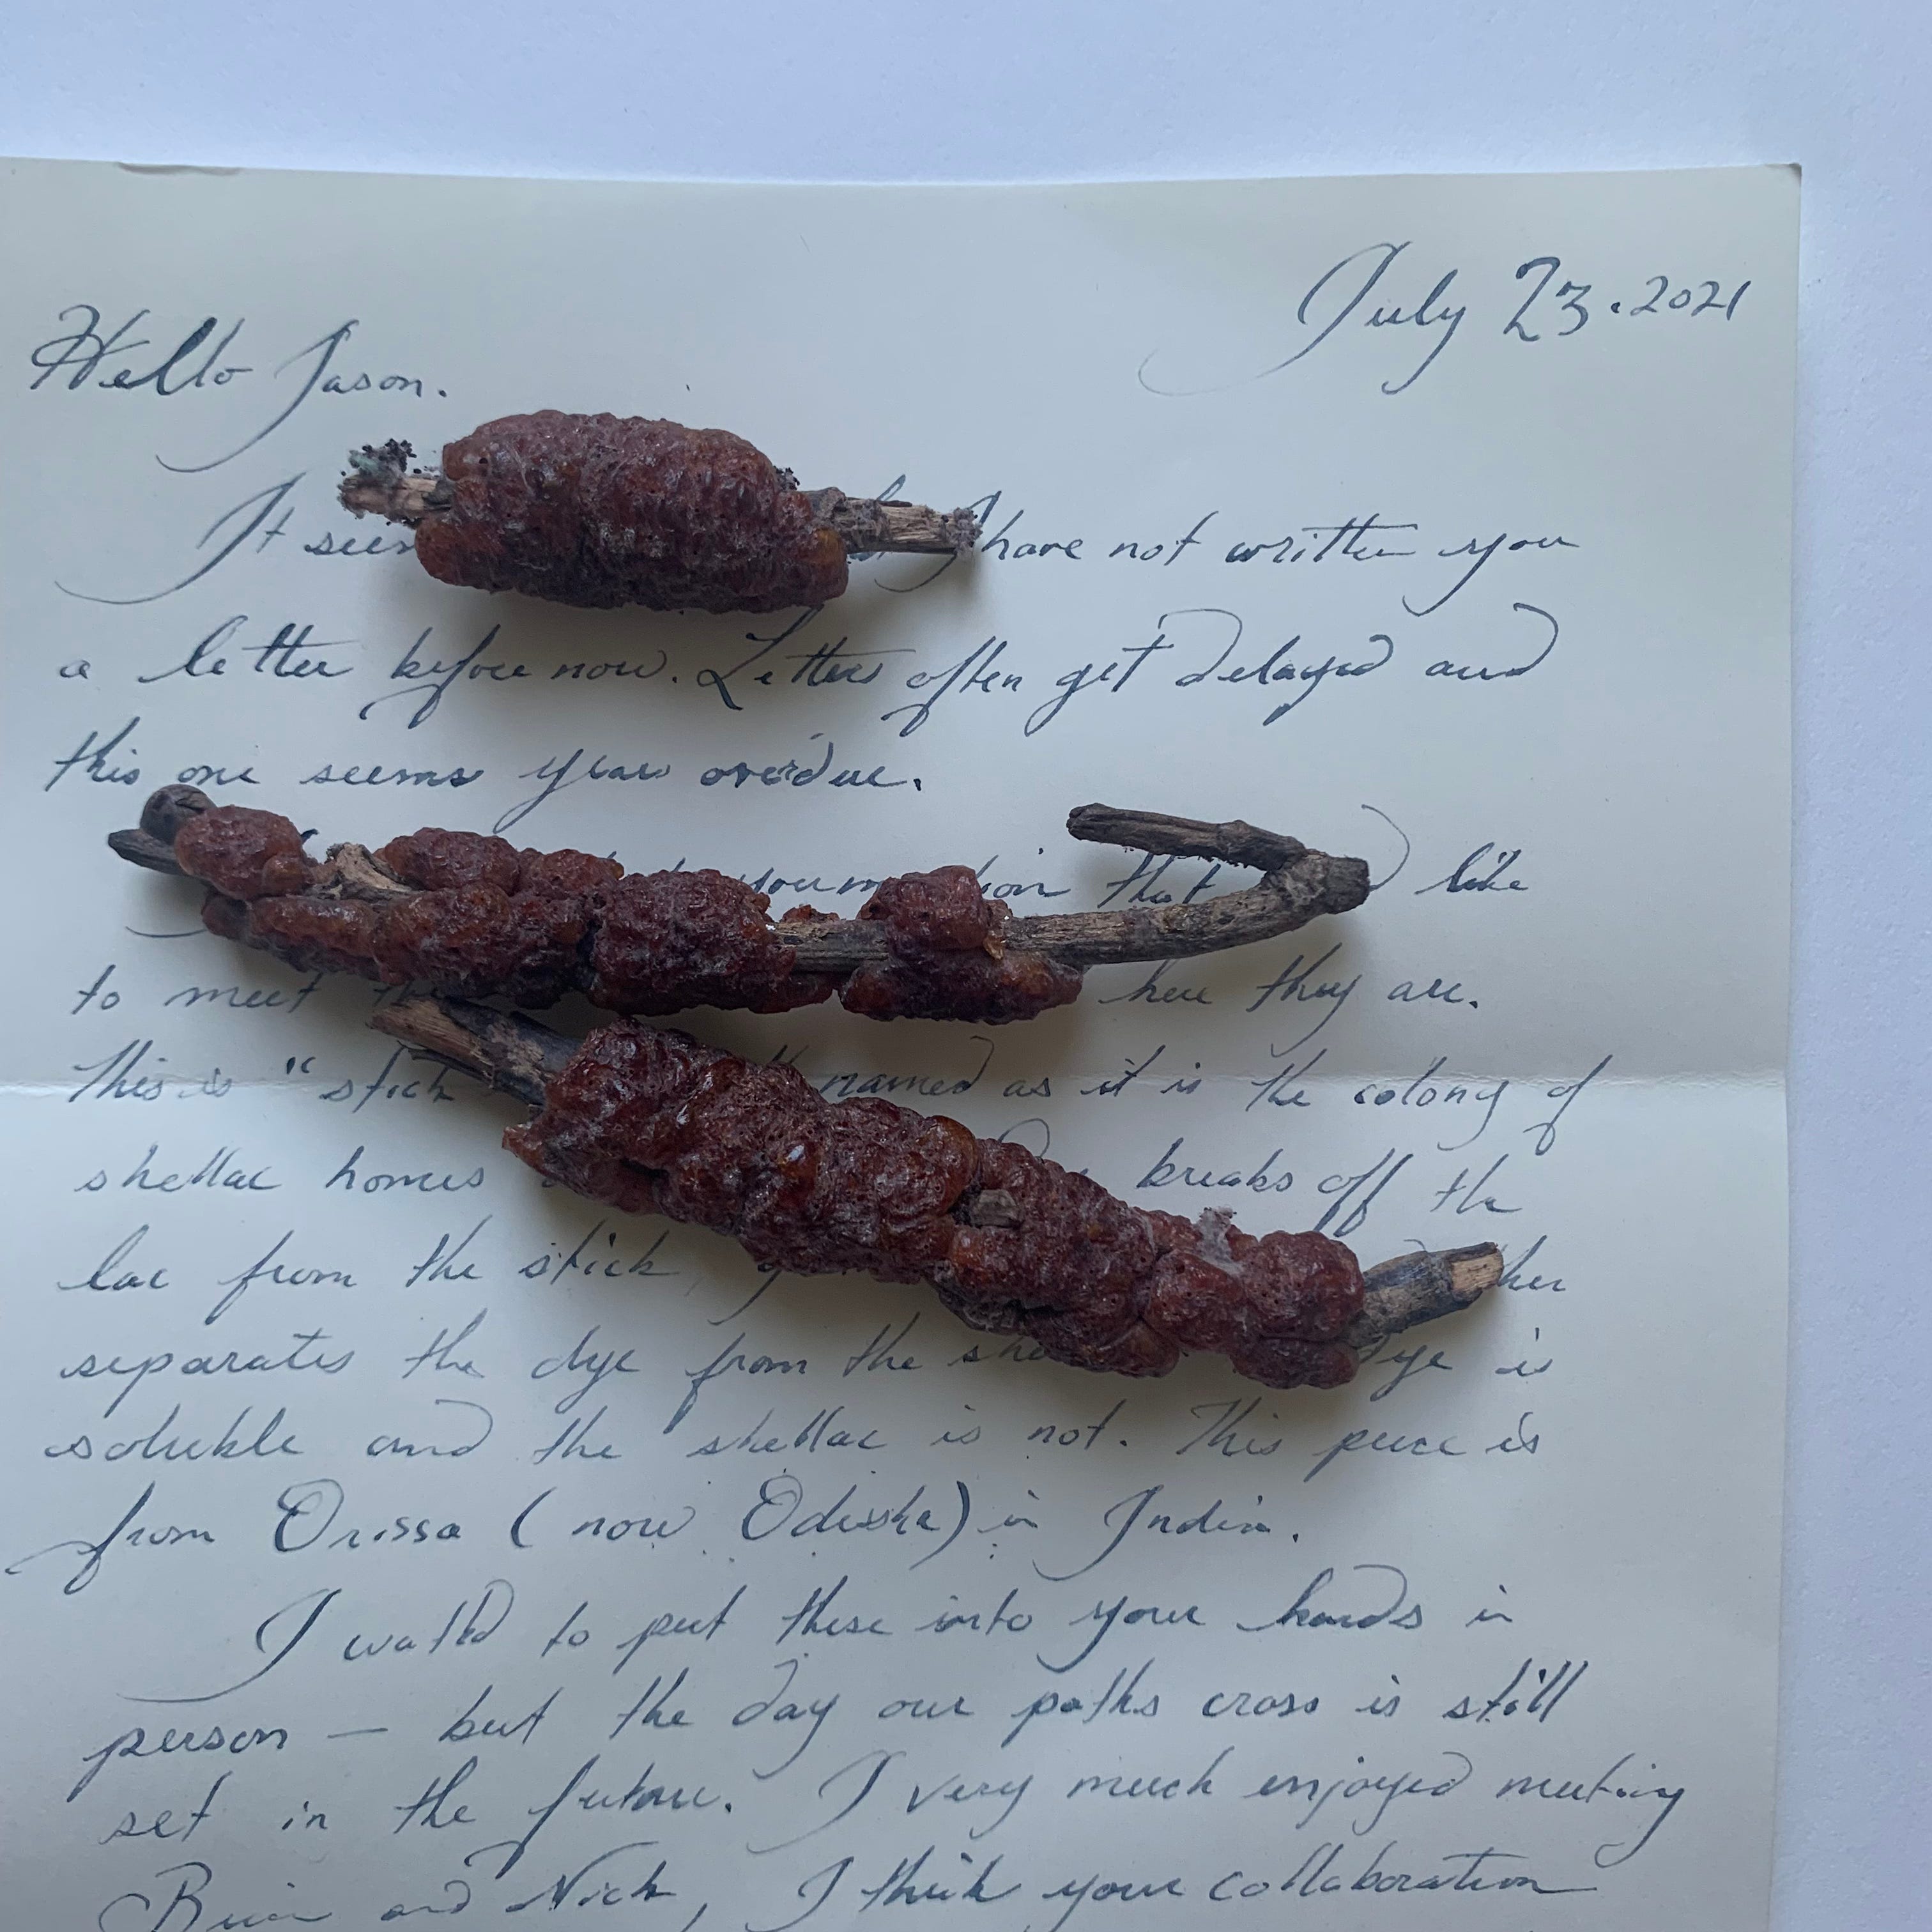 July 23.2021
Hello Jason.
It have not written you
a letter before now. Letters often get delayed and
this one seems years overdue.
that like
to meet here they are.
This is "stick named as it is the colony of
shellac homes breaks off the
lac from the stick,
separates the dye from the dye is
soluble and the shellac is not. This piece is
from Orissa (now Odisha) in India.
I wanted to put these into your hands in
person — but the day our paths cross is still
set in the future. I very much enjoyed meeting
and Nick, I think your collaboration